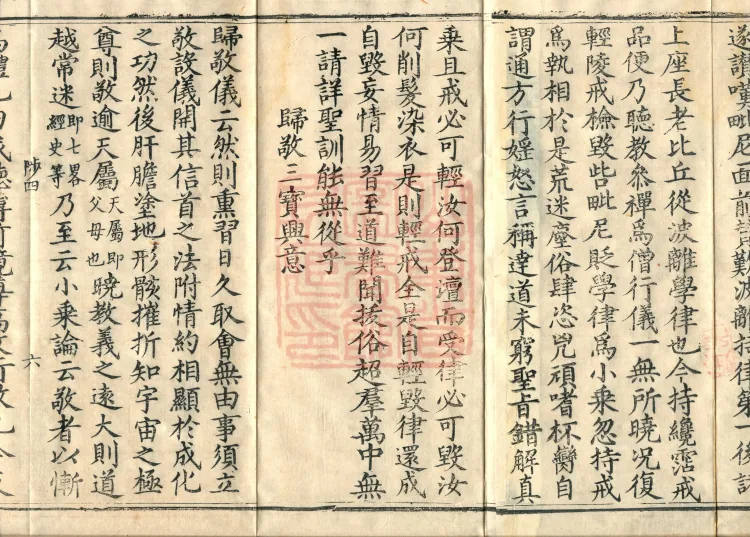 遂讀嘆毗尼面前
難波離持律第一後
上座長老比丘從波離學律也今持纔霑戒
品便乃聽教參禪爲僧行儀一無所曉况復
輕陵戒檢毀呰毗尼貶學律爲小乘忽持戒
爲執相於是荒迷塵俗肆恣兇頑嗜杯臠自
謂通方行婬怒言稱達道未窮聖旨錯解真
乗且戒必可輕汝何登壇而受律必可毀汝
何削髮染衣是則輕戒全是自輕毀律還成
自毀妄情易習至道難聞拔俗超羣萬中無
一請詳聖訓能無從乎
歸敬三寶興意
歸敬儀云然則熏習日久取會無由事須立
敬設儀開其信首之法附情約相顯於成化
之功然後肝膽塗地形骸摧折知宇宙之極
尊則敬逾天屬天屬即父母也曉教義之遠大則道
越常迷即七畧經史等乃至云小乘論云敬者以慚
陟四
六